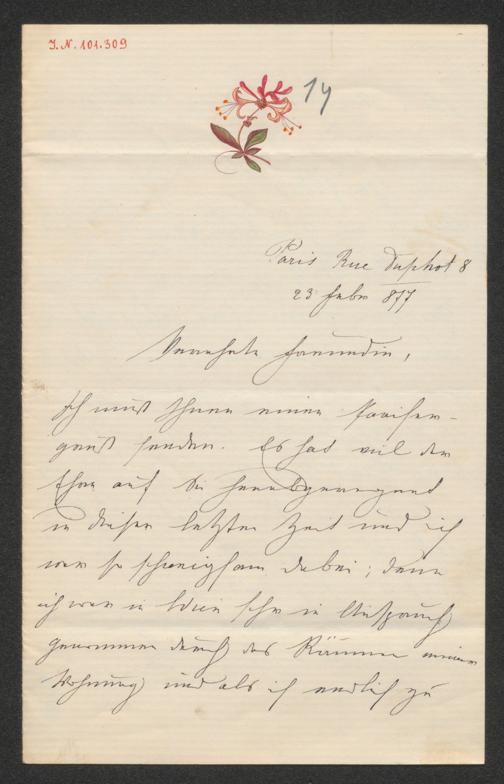 I.N. 101.309
14
Paris Rue Duphot 8
23 Febr 877
Verehrte Freundin,
Ich muß Ihnen einen Pariser-
gruß senden. Es hat viel der
Ehre auf Sie herabgeregnet
in dieser letzten Zeit und ich
war so schweigsam dabei; denn
ich war in Wien sehr in Anspruch
genommen durch das Räumen meiner
Wohnung und als ich endlich zu